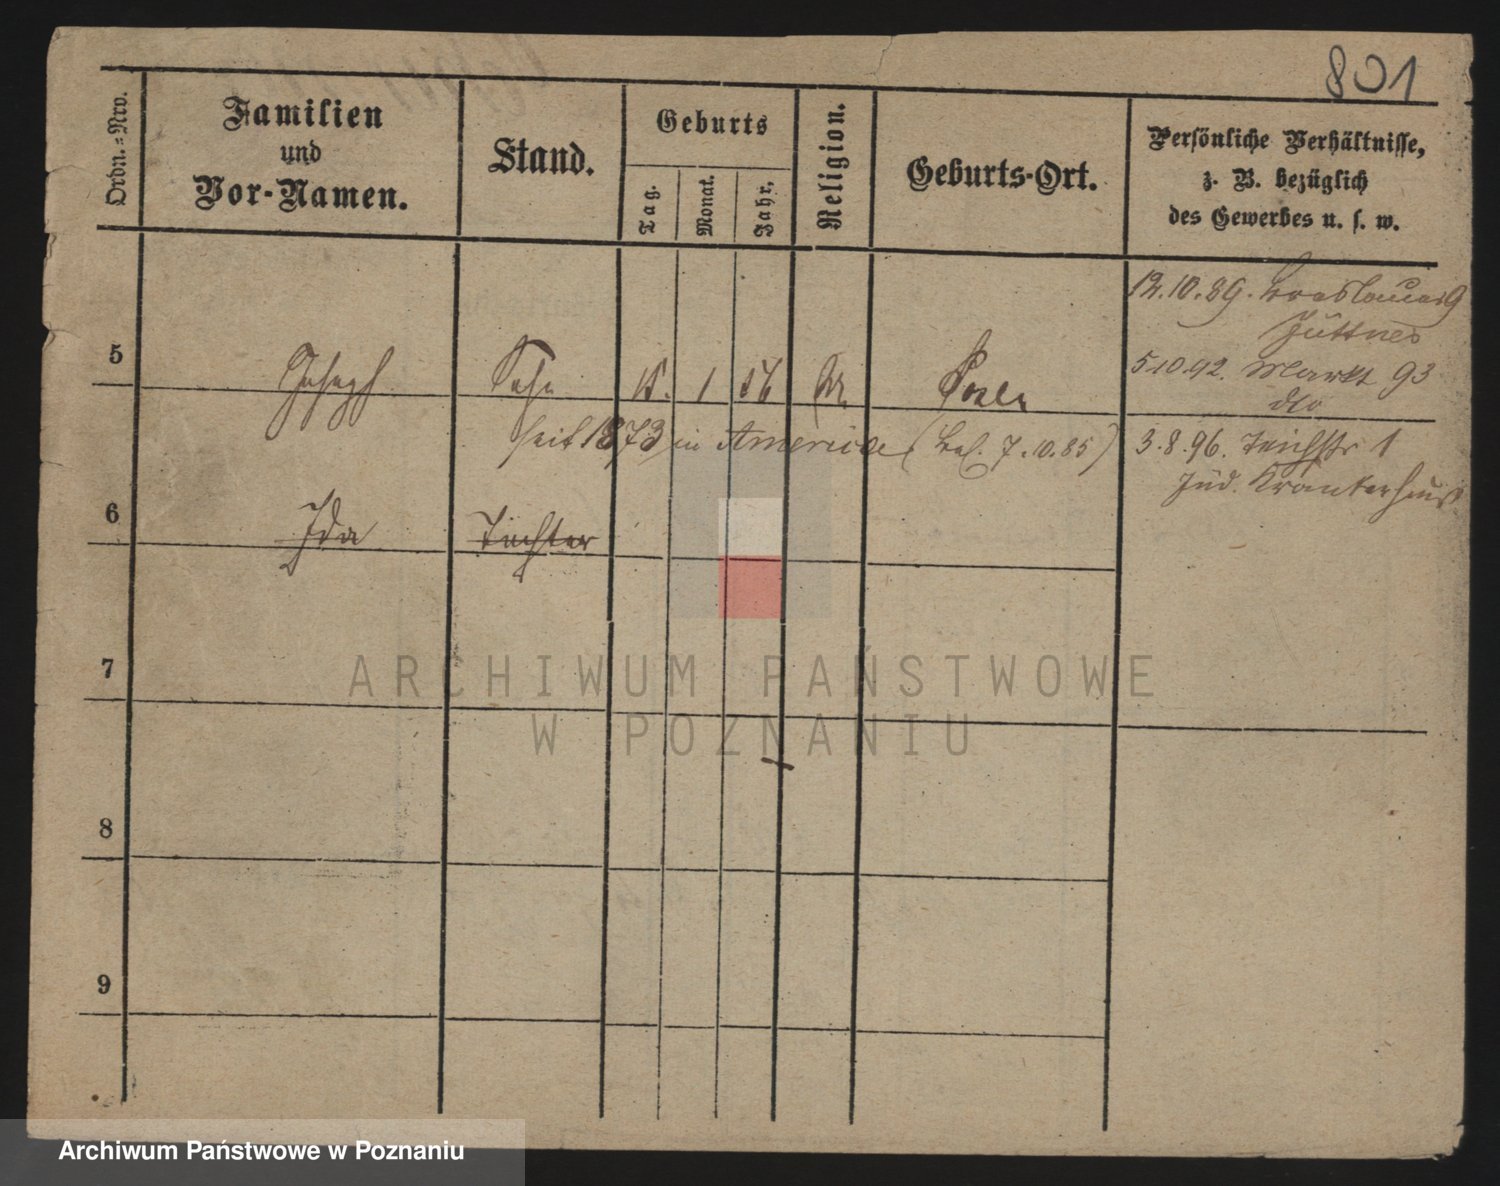 801
Ordn.=Nro.
Familien
und
Vor-Namen.
Stand.
Geburts
Tag.
Monat.
Jahr.
Religion.
Geburts-Ort.
Persönliche Verhältnisse,
z. B. bezüglich
des Gewerbes u. s. w.
12.10.89. Breslauer 9
Hüttner
5
Joseph
Sohn
15. 1 56
Posen
5.10.92. Markt 93
dto
seit 1873 in America (7.10.85)
3.8.96. Teichstr 1
Jüd. Krankenhaus
6
Ida
Tochter
7
8
9
ARCHIWUM PAŃSTWOWE
W POZNANIU
Archiwum Państwowe w Poznaniu